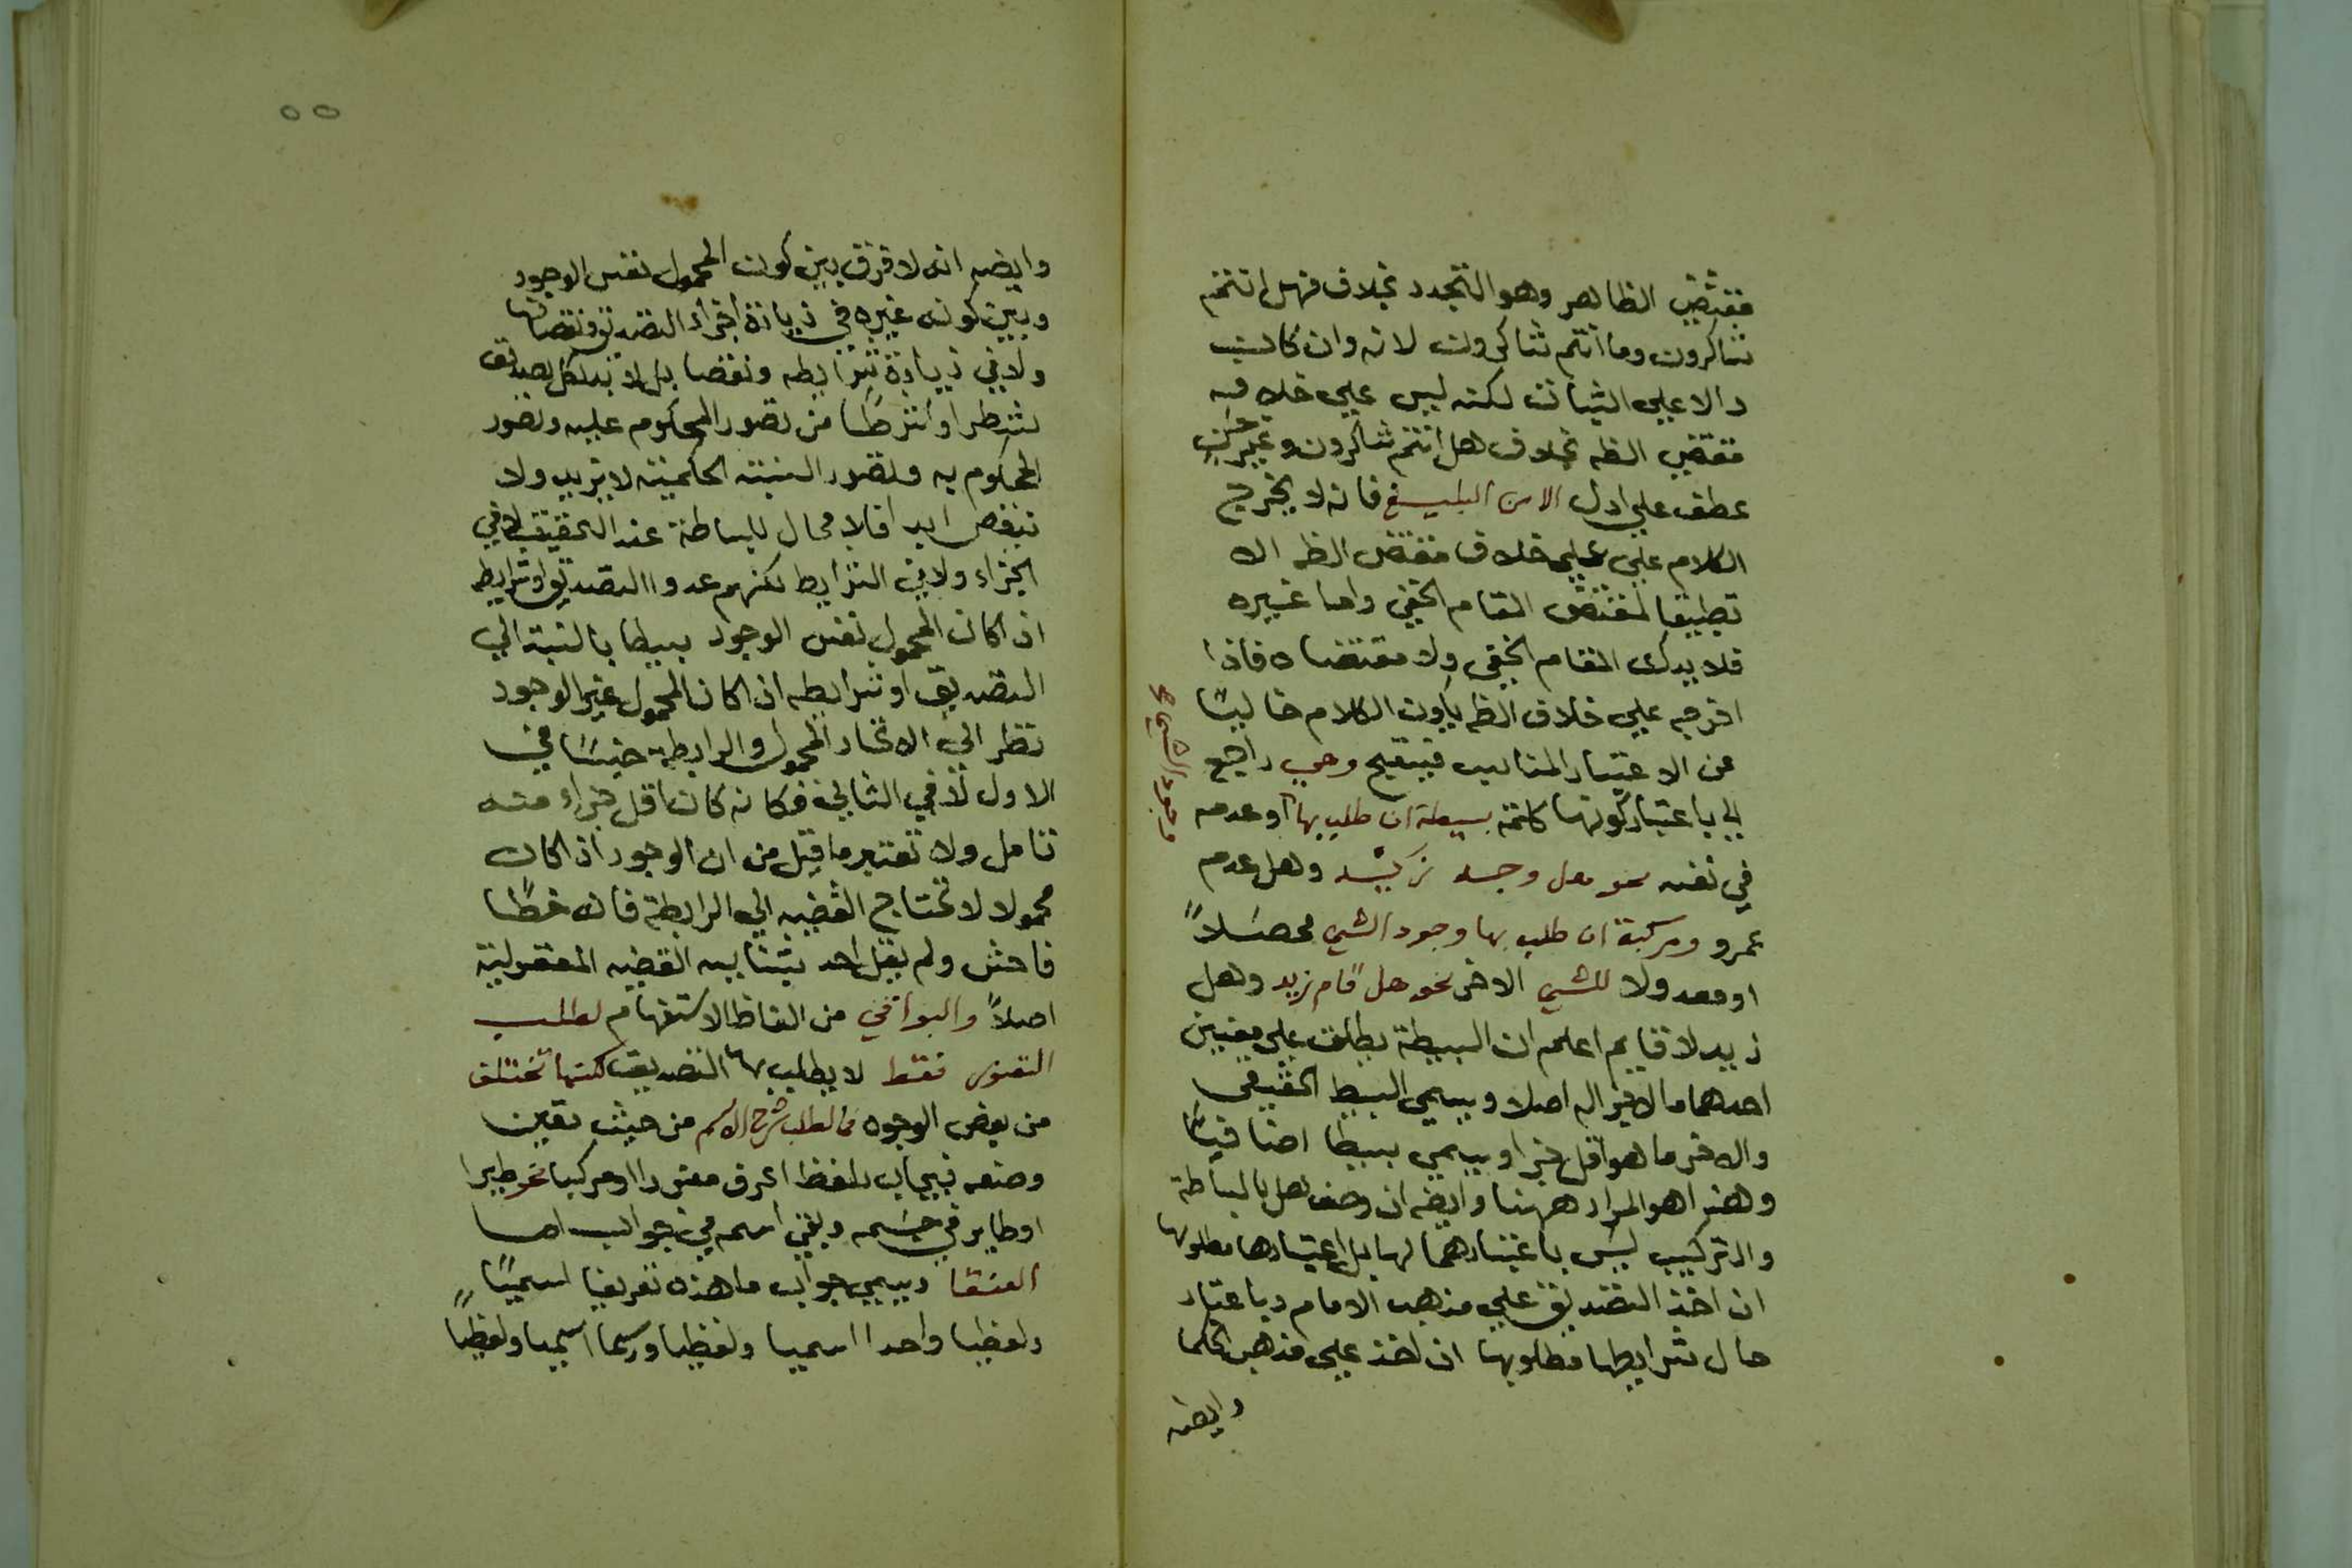 مقتضي الظاهر وهو التجدد بخلاف فهل انتم
شاكرون وما انتم شاكرون لانه وان كانت
دالا علي الثبات لكنه ليس علي خلاف
مقتضي الظه بخلاف هل انتم شاكرون وغير حسن
عطف علي ادل الا من البليغ فانه لا يخرج
الكلام علي علي خلاف مقتضي الظه الا
تطبيقا لمقتضي المقام الخفي واما غيره
فلا يدرك المقام الخفي ولا مقتضاه فاذا
اخرجه علي خلاف الظه يكون الكلام خاليًا
عن الاعتبار المناسب فيقبح وهي راجع
الي باعتبار كونها كلمة بسيطة ان طلب بها او عدمه
وجود الشي
في نفسه نحو هل وجد زيد وهل عدم
عمرو ومركبة ان طلب بها وجود الشي محصلاً
او معدولا للشي الاخر نحو هل قام زيد وهل
زيد لا قايم اعلم ان البسيطة يطلق علي معنيين
احدهما ما لا جزا له اصلا ويسمي البسيط الحقيقي
والاخر ما هو اقل جزا ويسمي بسيطا اضافيًا
وهذا هو المراد ههنا وايضه ان وصف هل بالبساطة
والتركيب ليس باعتبارهما لها بل باعتبارها مطلوبها
ان اخذ التصديق علي مذهب الامام وباعتبار
حال شرايطها مطلوبها ان اخذ علي مذهب الحكما
وايضه
٥٥
وايضه انه لا فرق بين كون المحمول نفس الوجود
وبين كونه غيره في زيادة اجزاء التصديق ونقصانها
ولا في زيادة شرايطه ونقصا بل لا بد لكل تصديق
شطرا او شرطا من تصور المحكوم عليه وتصور
المحكوم به وتصور النسبة الحكمية لا يزيد ولا
ينقص ابدا فلا مجال للبساطة عند التحقيق لا في
الجزاء ولا في الشرايط لكنهم عدوا التصديق او شرايطه
اذا كان المحمول نفس الوجود بسيطا بالنسبة الي
التصديق او شرايطه اذا كان المحمول غير الوجود
نظر الي الاتحاد المحمول والرابطة جنسًا في
الاول لا في الثاني فكانه كان اقل جزاء منه
تامل ولا تعتبر ما قيل من ان الوجود اذا كان
محمولا لا تحتاج القضيه الي الرابطة فانه خطًا
فاحش ولم يقل احد بثنايبه القضيه المعقولية
اصلاً والبواقي من الفاظ الاستفهام لطلب
التصور فقط لا يطلب بها التصديق لكنها تختلف
من بعض الوجوه فما لطلب شرح الاسم من حيث تعين
وضعه فيجاب بلفظ اعرف مفردا او مركبا نحو طيرا
او طاير في جسمه وبقي اسمه في جواب اما
العنقا ويسمي جواب ما هذه تعريفا اسميًا
ولفظيا واحدا اسميا ولفظيا ورسما اسميا ولفظيًا